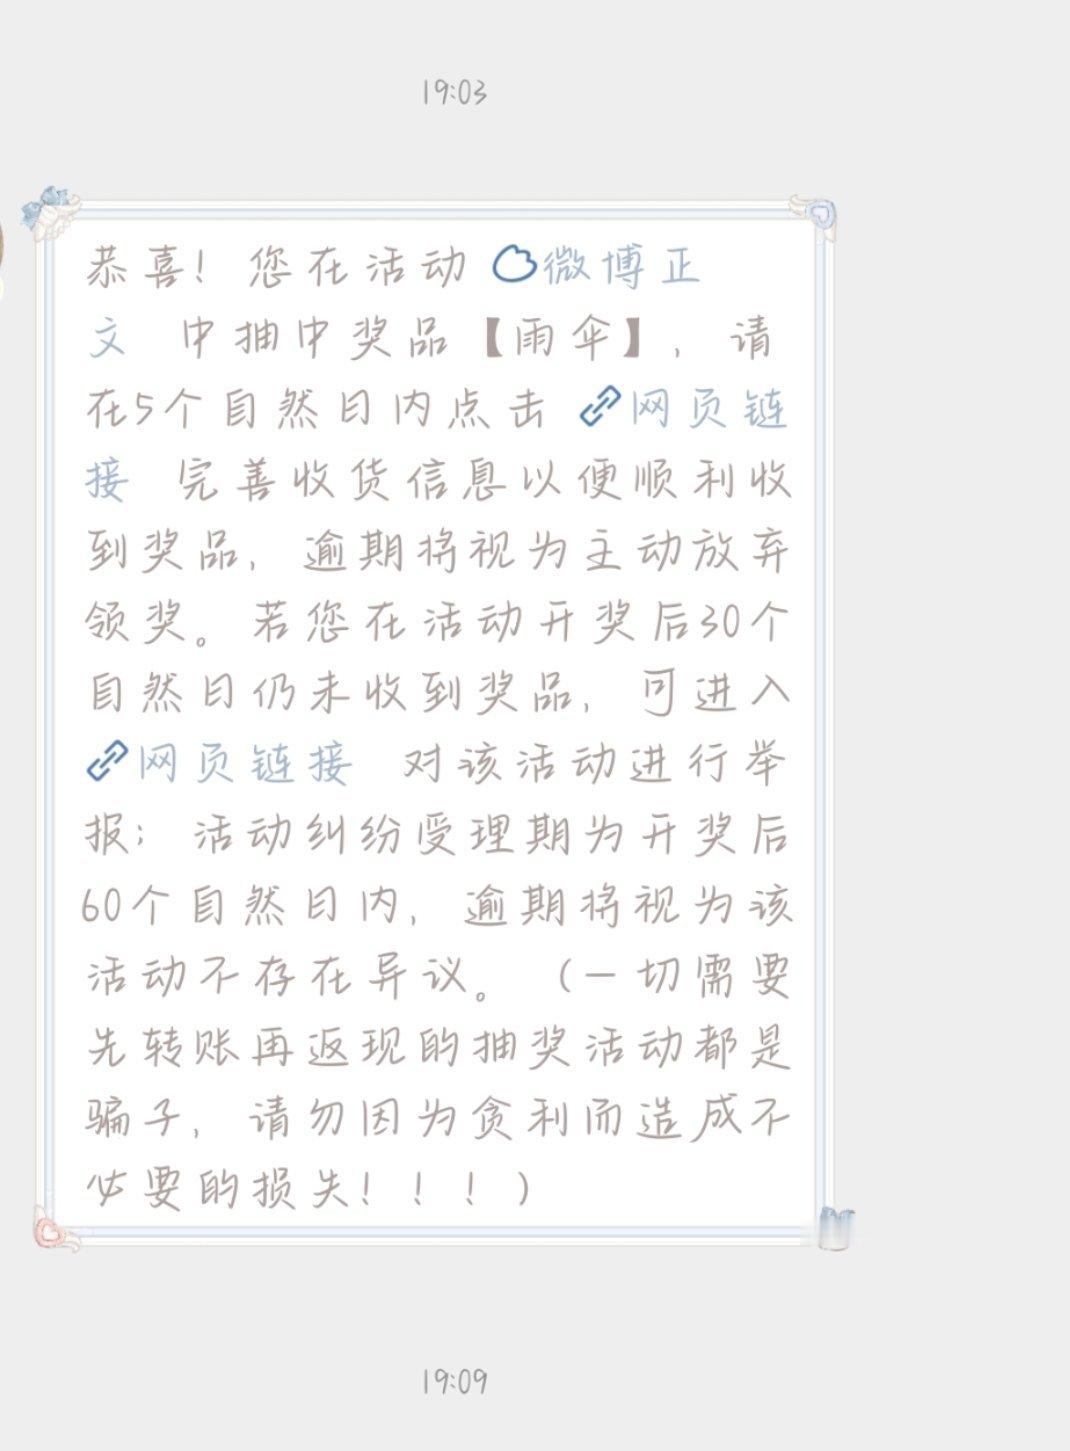 19:03
恭喜！您在活动 微博正
文 中抽中奖品【雨伞】，请
在5个自然日内点击 网页链
接 完善收货信息以便顺利收
到奖品，逾期将视为主动放弃
领奖。若您在活动开奖后30个
自然日仍未收到奖品，可进入
网页链接 对该活动进行举
报；活动纠纷受理期为开奖后
60个自然日内，逾期将视为该
活动不存在异议。（一切需要
先转账再返现的抽奖活动都是
骗子，请勿因为贪利而造成不
必要的损失！！！）
19:09